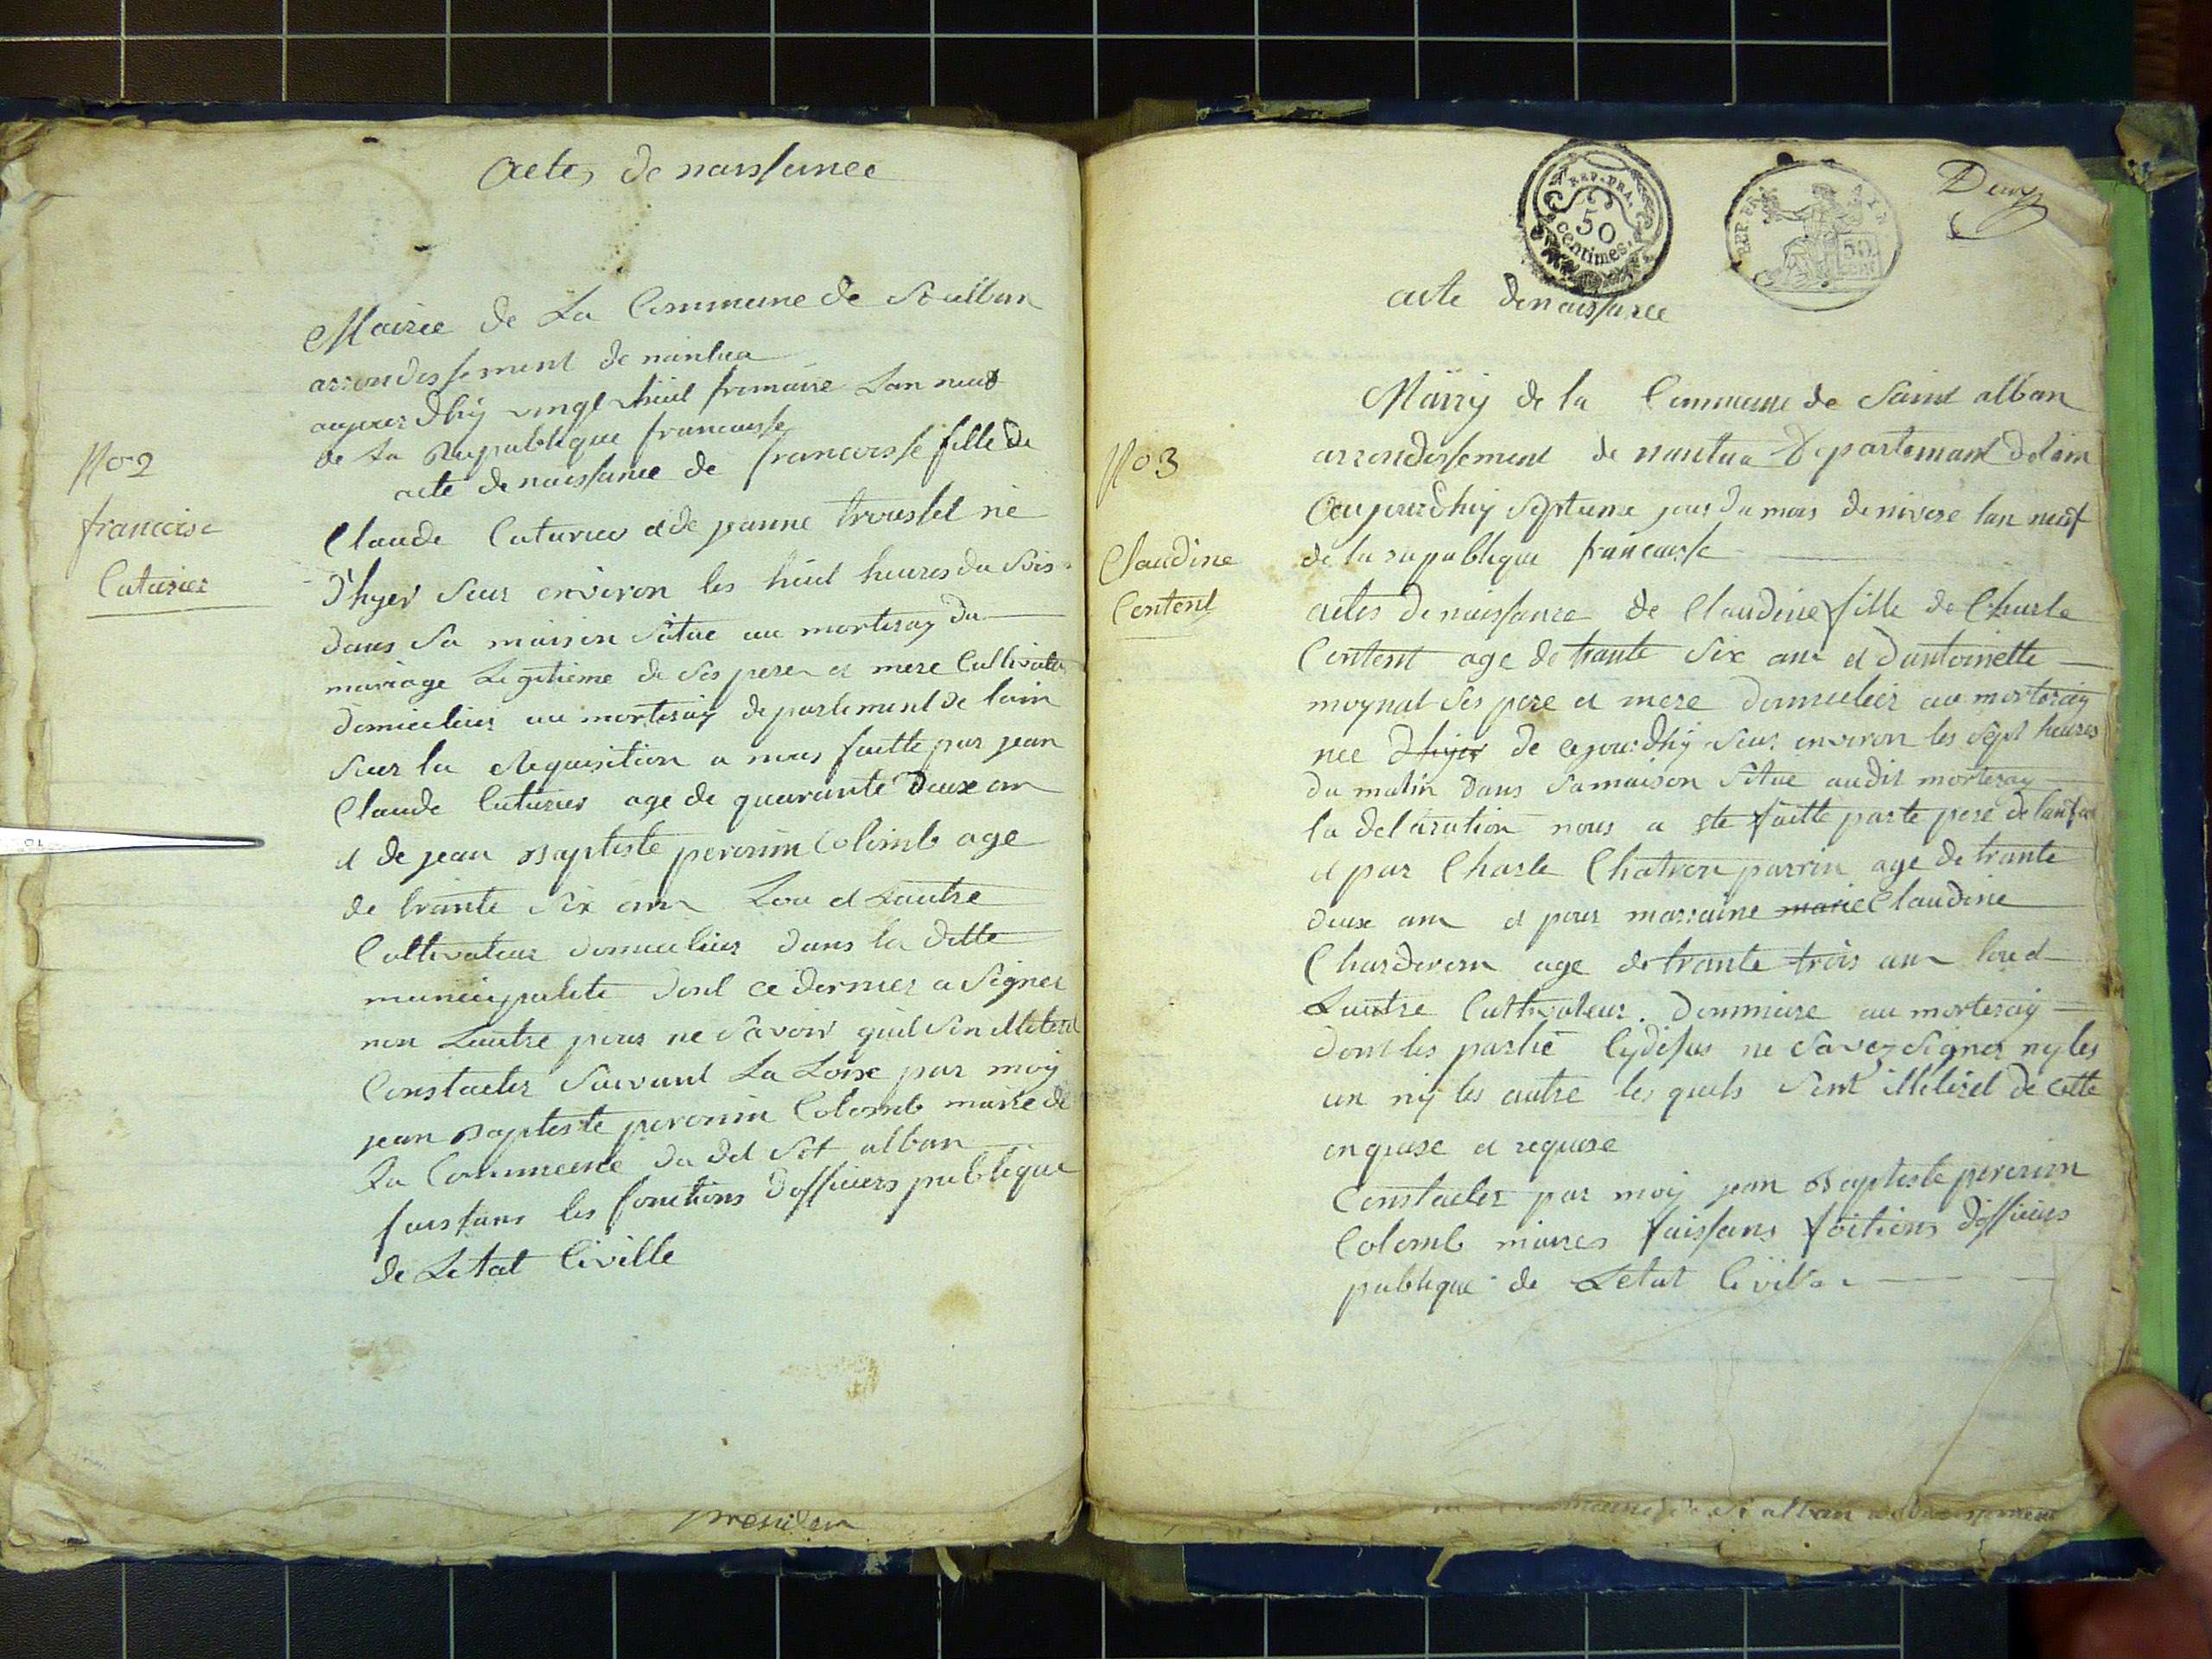 actes de naissance
Mairie de La Commune de St alban
arrondissement de nantua
aujourdhÿ vingt huit frimaire Lan neuf
de La Republique francaisse
No 2
francoise
Caturier
acte de naissance de francoisse fille de
Claude Caturier et de jeanne trousset né
d'hyer sur environ les huit heures du Soir
dans Sa maison Situe au morteray du
mariage Legitieme de Ses peres et mere Cultivateur
domicilies au morteraÿ departement de lain
Sur la Requisition a nous faitte par jean
Claude Caturier age de quarante deux an
et de jean Baptiste peronin Colomb age
de trante Six ans Lou et Lautre
Cultivateur domicilies dans la ditte
municipalite dont ce dernier a Signer
non Lautre pour ne Savoir
Constacter Suivant La Loix par moÿ
jean Baptiste peronin Colomb maire de
La Commune du dit St alban
faissans les fonctions dofficiers publique
de Letat Civille
REP. FRA.
50
centimes.
REP. FRA.
50
acte de naissance
Mairÿ de la Commune de Saint alban
arrondissement de nantua Departemant de lain
No 3
Claudine
Content
Aujourdhÿ Septieme jour du mois de nivose lan neuf
de la republique francaisse
actes de naissance de Claudine fille de Charle
Content age de trante Six ans et dantoinette
moynat Ses pere et mere domicilier au morteraÿ
nee d'hyer de cejourdhÿ Sur environ les Sept heures
du matin dans Sa maison Situe audit morteray
la declaration nous a ete faitte par le pere de lanfant
et par Charle Chatron parrin age de trante
deux an et pour marraine marie Claudine
Charderon age de trante trois ans lou et
Lautre Cultivateur. au morteraÿ
dont les partie Cydesus ne Savez Signer ny les
un nÿ les autre les quels Sont illitéret de cette
enquise et requise
Constacter par moÿ jean Baptiste peronin
Colomb maires faissans foitions dofficiers
publique de Letat Civille